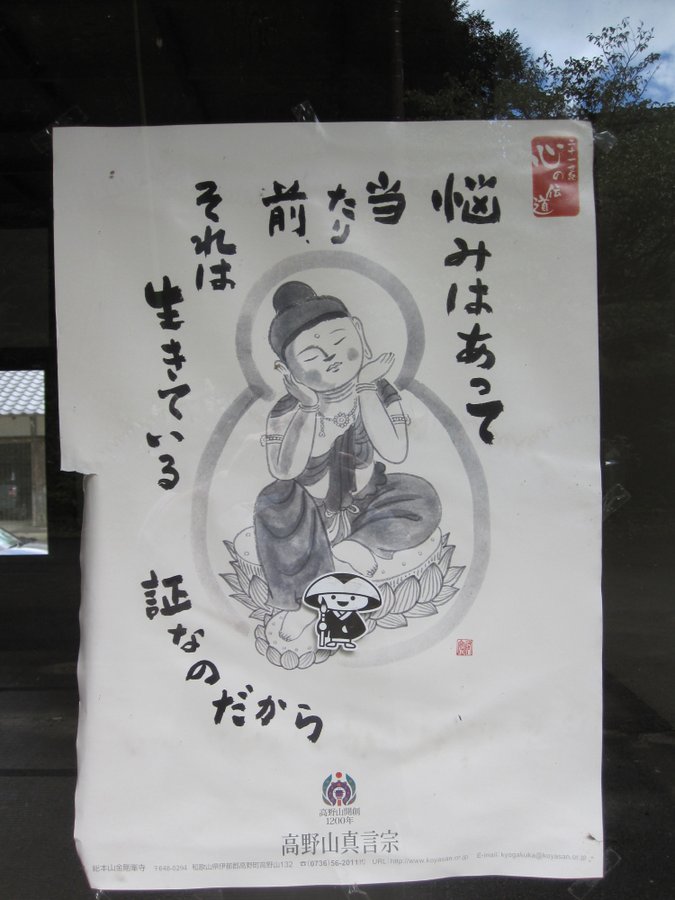 心の伝道
悩みはあって
当
たり
前、
それは
生きている
証なのだから
高野山開創
1200年
高野山真言宗
総本山金剛峯寺 〒648-0294 和歌山県伊都郡高野町高野山132 ☎(0736)56-2011㈹ URL:http://www.koyasan.or.jp E-mail:kyogakuka@koyasan.or.jp